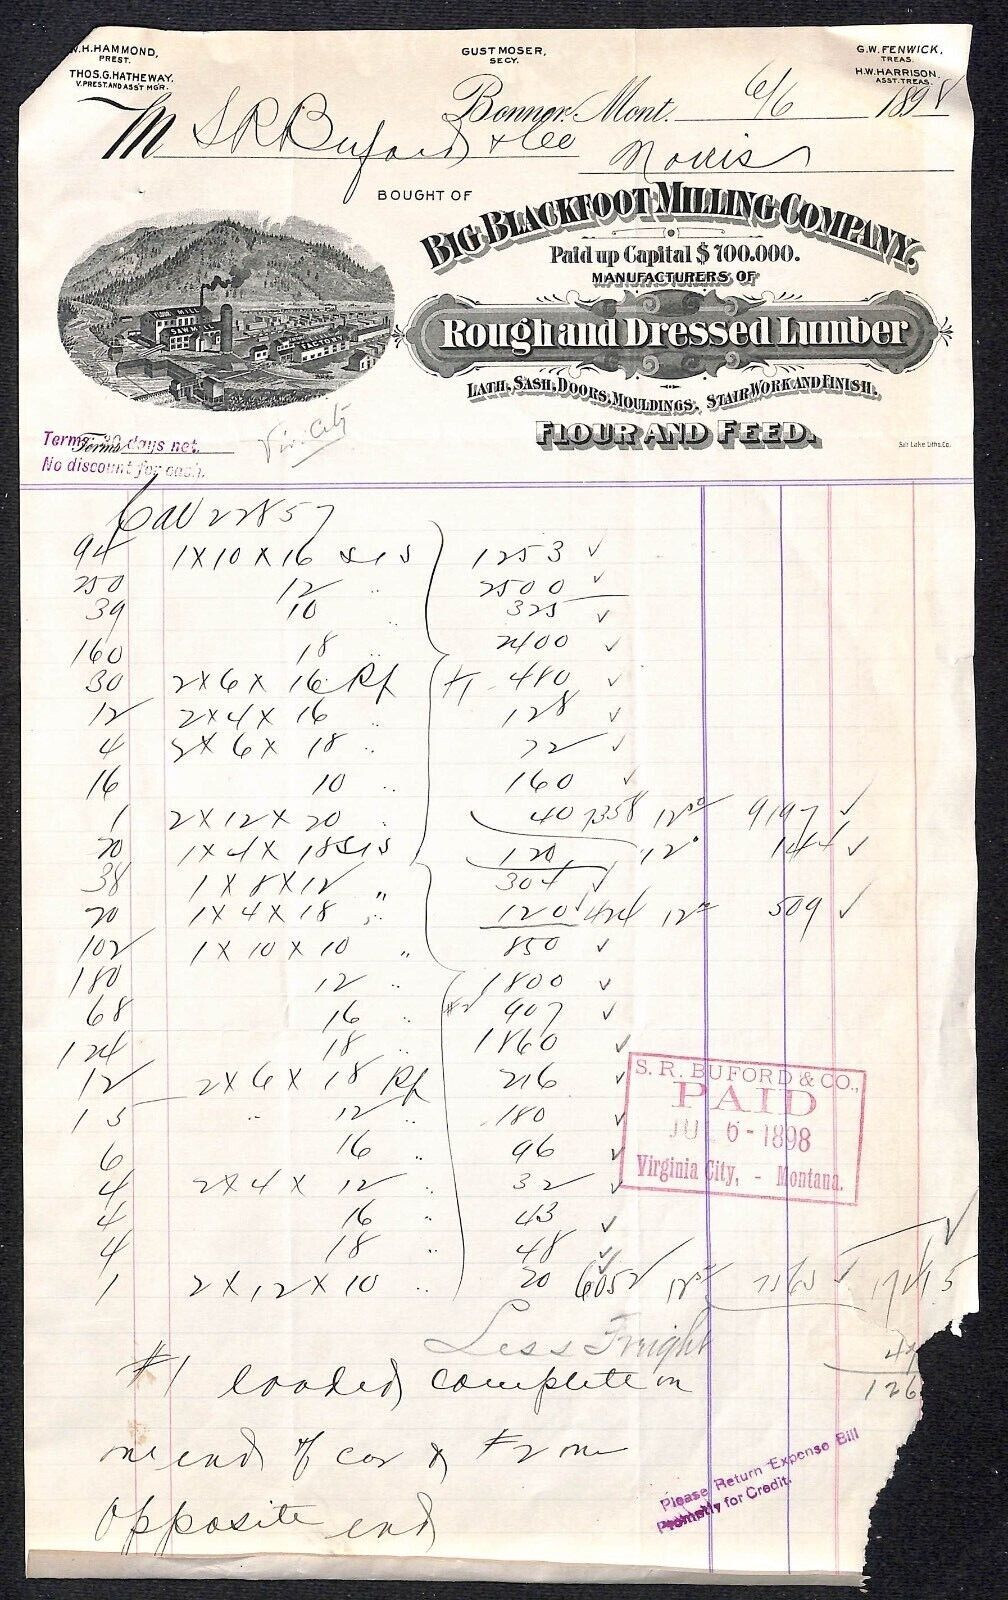 W.H. HAMMOND,
PREST.
THOS. G. HATHEWAY,
V. PREST. AND ASS'T MGR.
GUST MOSER,
SECY.
G.W. FENWICK,
TREAS.
H.W. HARRISON.
ASST. TREAS.
Bonner, Mont. 6/6 1898
M S R Buford & Co Norris
BOUGHT OF
BIG BLACKFOOT MILLING COMPANY.
Paid up Capital $700.000.
MANUFACTURERS OF
Rough and Dressed Lumber
LATH, SASH, DOORS, MOULDINGS, STAIR WORK AND FINISH.
FLOUR AND FEED.
FLOUR MILL
SAWMILL
FACTORY
Salt Lake Litho. Co.
Terms
Terms 30 days net.
No discount for cash.
Vir. City
Car 22857
94 1x10x16 S1S 1253 ✓
250 12 " 2500 ✓
39 10 " 325 ✓
160 18 " 2400 ✓
30 2x6x16 Rf #1 480 ✓
12 2x4x16 " 128 ✓
4 2x6x18 " 72 ✓
16 10 " 160 ✓
1 2x12x20 " 40 7358 12 50 9197 ✓
20 1x4x18 S1S 120 12 0 144 ✓
38 1x8x12 " 304 ✓
20 1x4x18 " 120 ✓ 424 12 00 509 ✓
102 1x10x10 " 850 ✓
180 12 " 1800 ✓
68 16 " #2 907 ✓
124 18 " 1860 ✓
12 2x6x18 Rf 216 ✓
15 " 12 " 180 ✓
6 16 " 96 ✓
4 2x4x12 " 32 ✓
4 16 " 43 ✓
4 18 " 48 ✓
1 2x12x10 " 20 6052 ✓ 12 50 7565 ✓ 17415
Less Freight
126
#1 loaded complete in
one end of car & #2 in
opposite end
S. R. BUFORD & CO.,
PAID
JUL 6 - 1898
Virginia City, - Montana.
Please Return Expense Bill
Promptly for Credit.